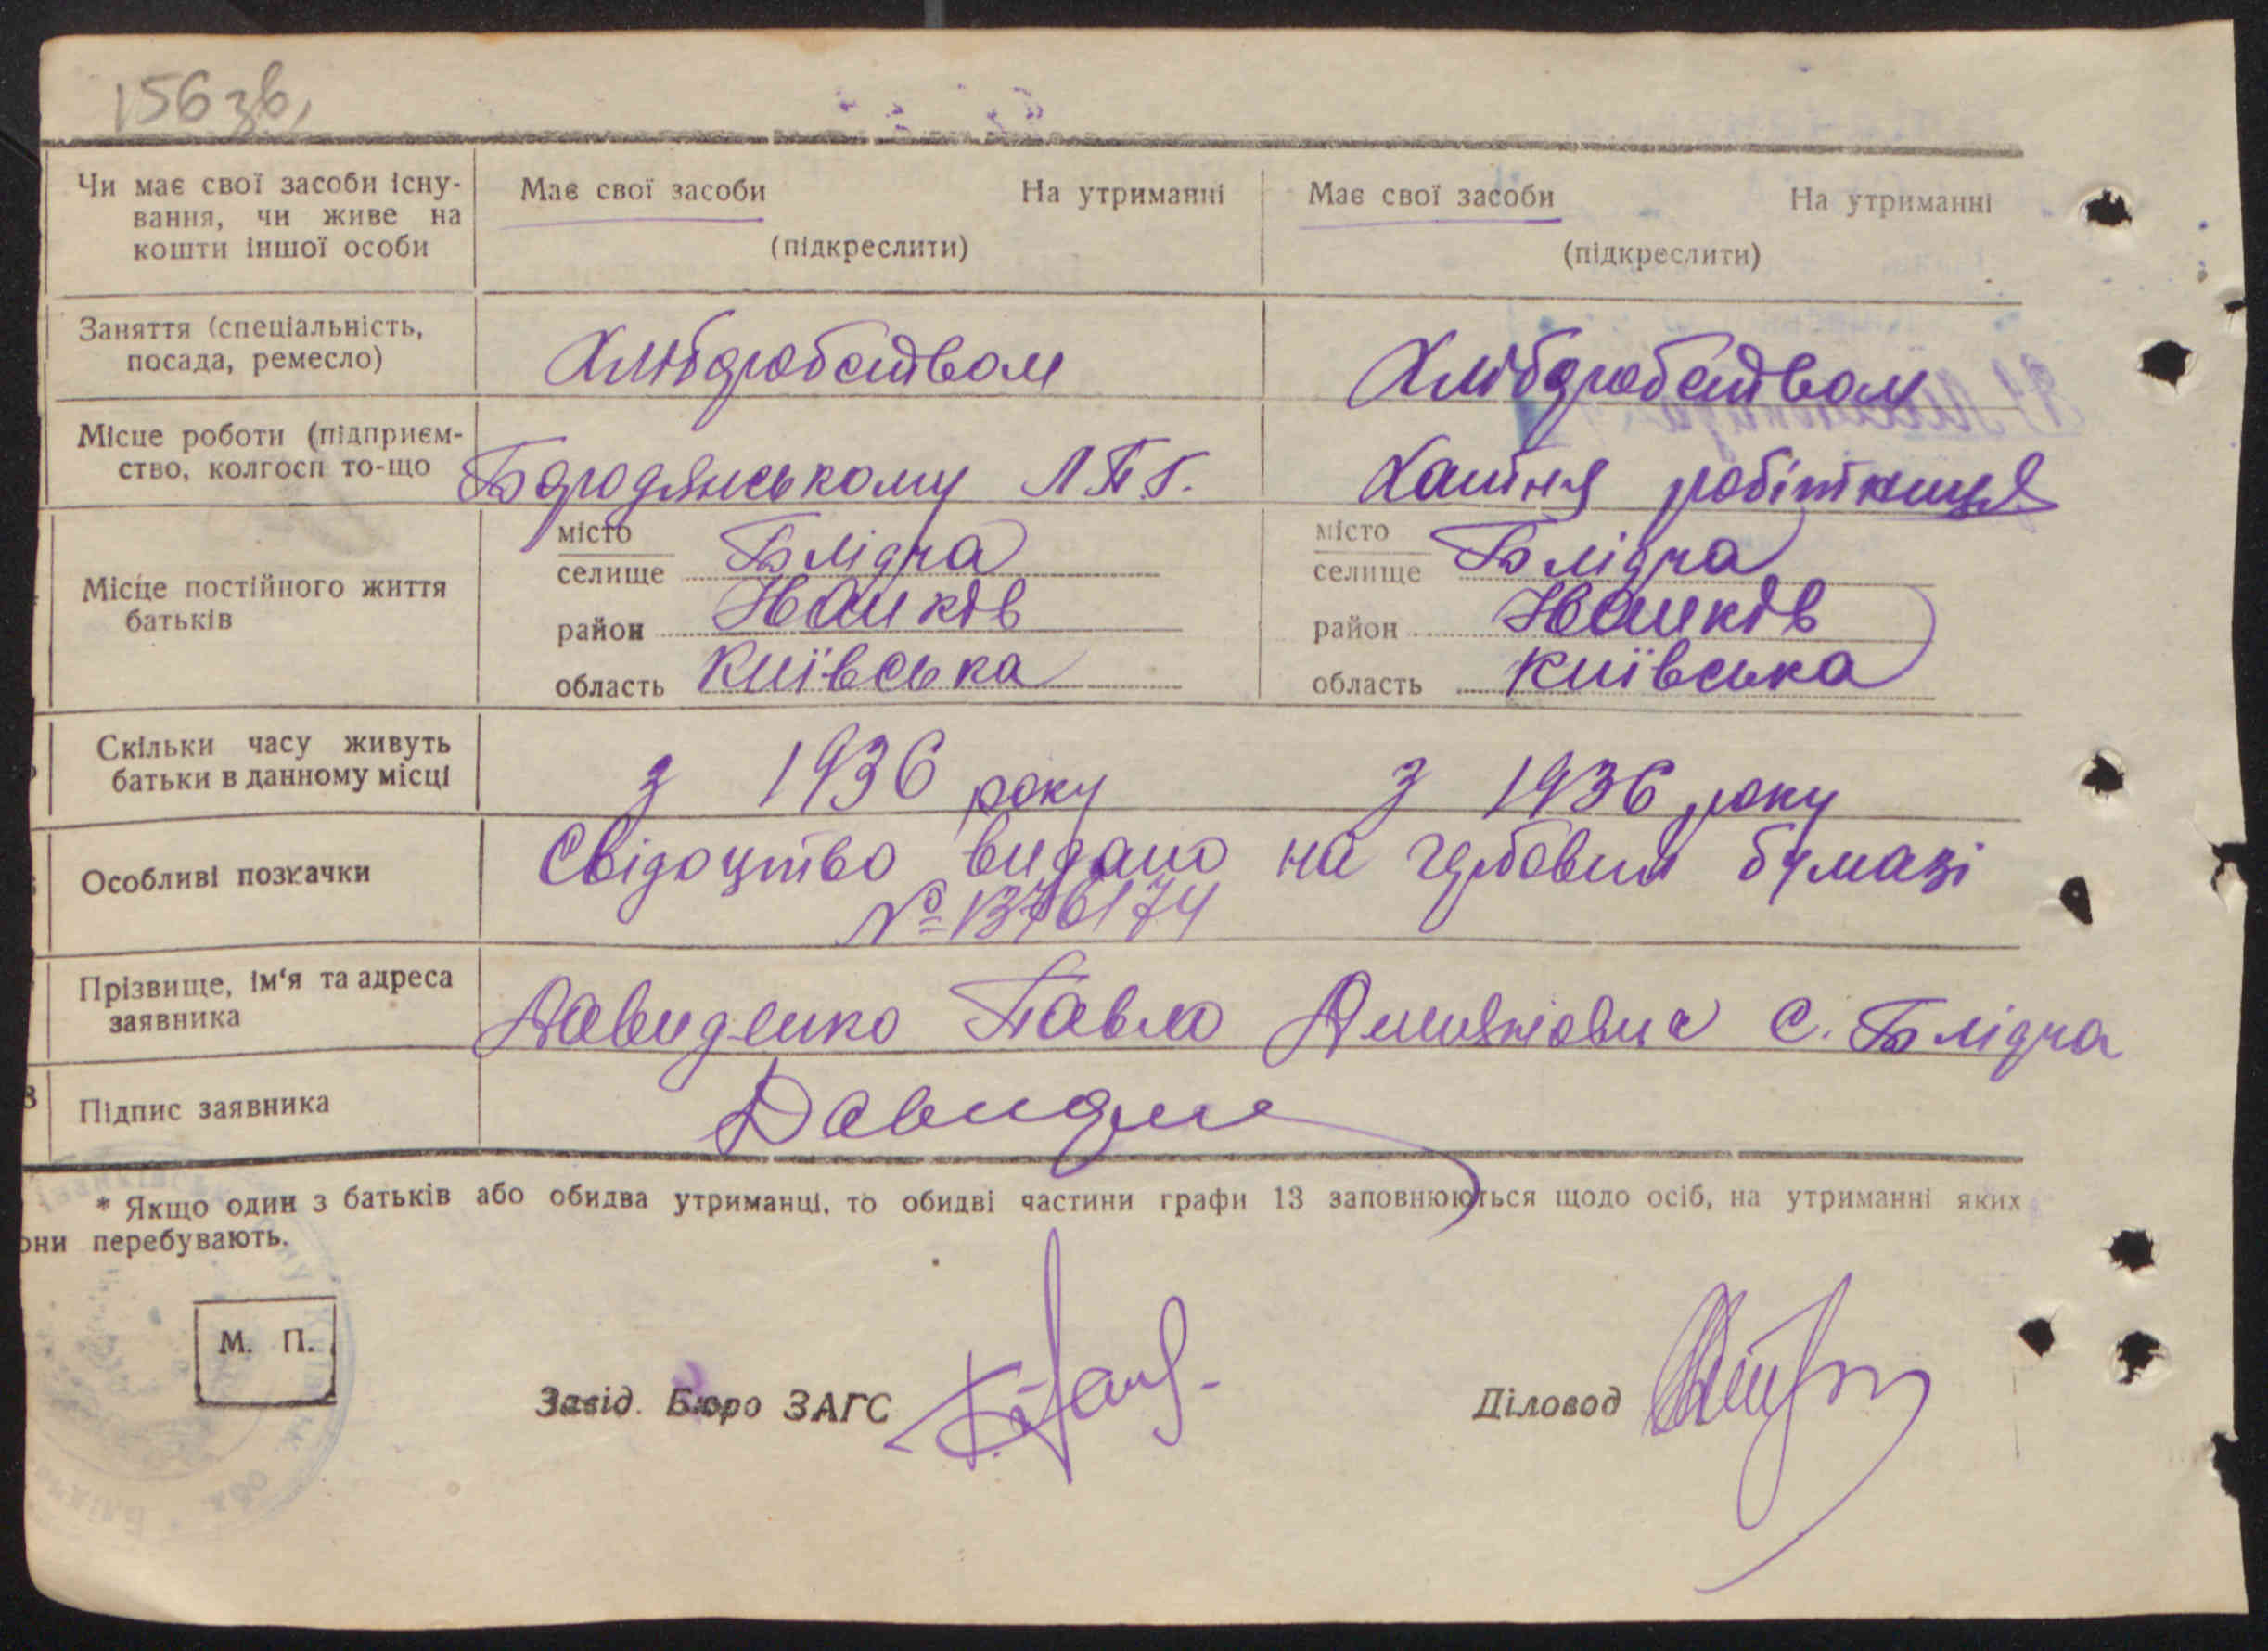 156 зв.
Чи має свої засоби існу-
вання, чи живе на
кошти іншої особи
Має свої засоби На утриманні
(підкреслити)
Має свої засоби На утриманні
(підкреслити)
Заняття (спеціальність,
посада, ремесло)
Хлібдробством
Хлібдробством
Місце роботи (підприєм-
ство, колгосп то-що
Бородянському Л.П.Г.
Хатня робітниця
Місце постійного життя
батьків
місто
селище Блідча
район Іванків
область Київська
місто
селище Блідча
район Іванків
область Київська
Скільки часу живуть
батьки в данному місці
з 1936 року
з 1936 року
Особливі позначки
Свідоцтво видано на гербовій бумазі
№ 1376174
Прізвище, ім'я та адреса
заявника
Давиденко Павло с. Блідча
Підпис заявника
* Якщо один з батьків або обидва утриманці, то обидві частини графи 13 заповнюються щодо осіб, на утриманні яких
они перебувають.
М. П.
Завід. Бюро ЗАГС
Діловод